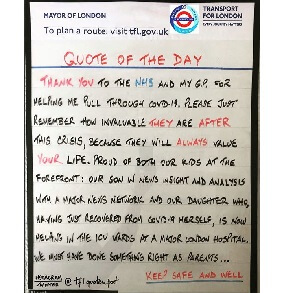 MAYOR OF LONDON
TRANSPORT FOR LONDON
EVERY JOURNEY MATTERS
To plan a route, visit tfl.gov.uk
QUOTE OF THE DAY
THANK YOU TO THE NHS AND MY G.P. FOR
HELPING ME PULL THROUGH COVID-19. PLEASE JUST
REMEMBER HOW INVALUABLE THEY ARE AFTER
THIS CRISIS, BECAUSE THEY WILL ALWAYS VALUE
YOUR LIFE. PROUD OF BOTH OUR KIDS AT THE
FOREFRONT: OUR SON IN NEWS INSIGHT AND ANALYSIS
WITH A MAJOR NEWS NETWORK AND OUR DAUGHTER WHO,
HAVING JUST RECOVERED FROM COVID-19 HERSELF, IS NOW
HELPING IN THE ICU WARDS AT A MAJOR LONDON HOSPITAL.
WE MUST HAVE DONE SOMETHING RIGHT AS PARENTS...
INSTAGRAM
KEEP SAFE AND WELL